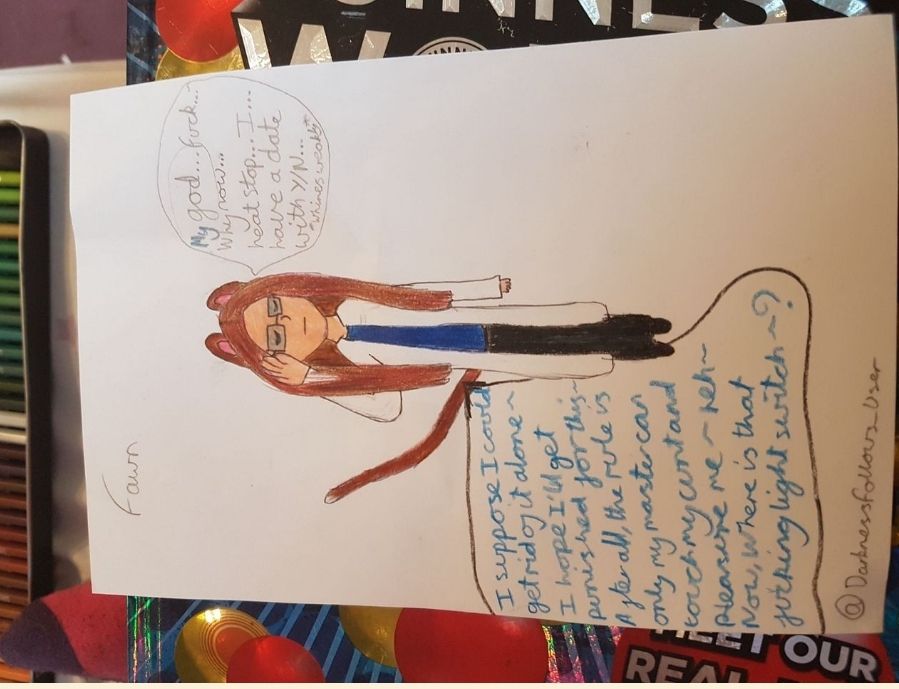 Fawn
My god... fuck...
Why now...
heat stop... I...
have a date
with Y/N...
*whines weakly*
I suppose I could
get rid of it alone~
I hope I'll get
punished for this~
After all, the rule is
only my master can
touch my cunt and
pleasure me~ heh~
Now, where is that
fucking light switch~?
@DarknessFollows_User
MEET OUR
REAL